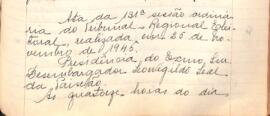 Ata da 131ª sessão ordiná
ria do Tribunal Regional Elei
toral, realizada em 26 de no
vembro de 1946.
Presidência do Exmo. Snr.
Desembargador Leovigildo Leal
da Paixão.
Às quatorze horas do dia